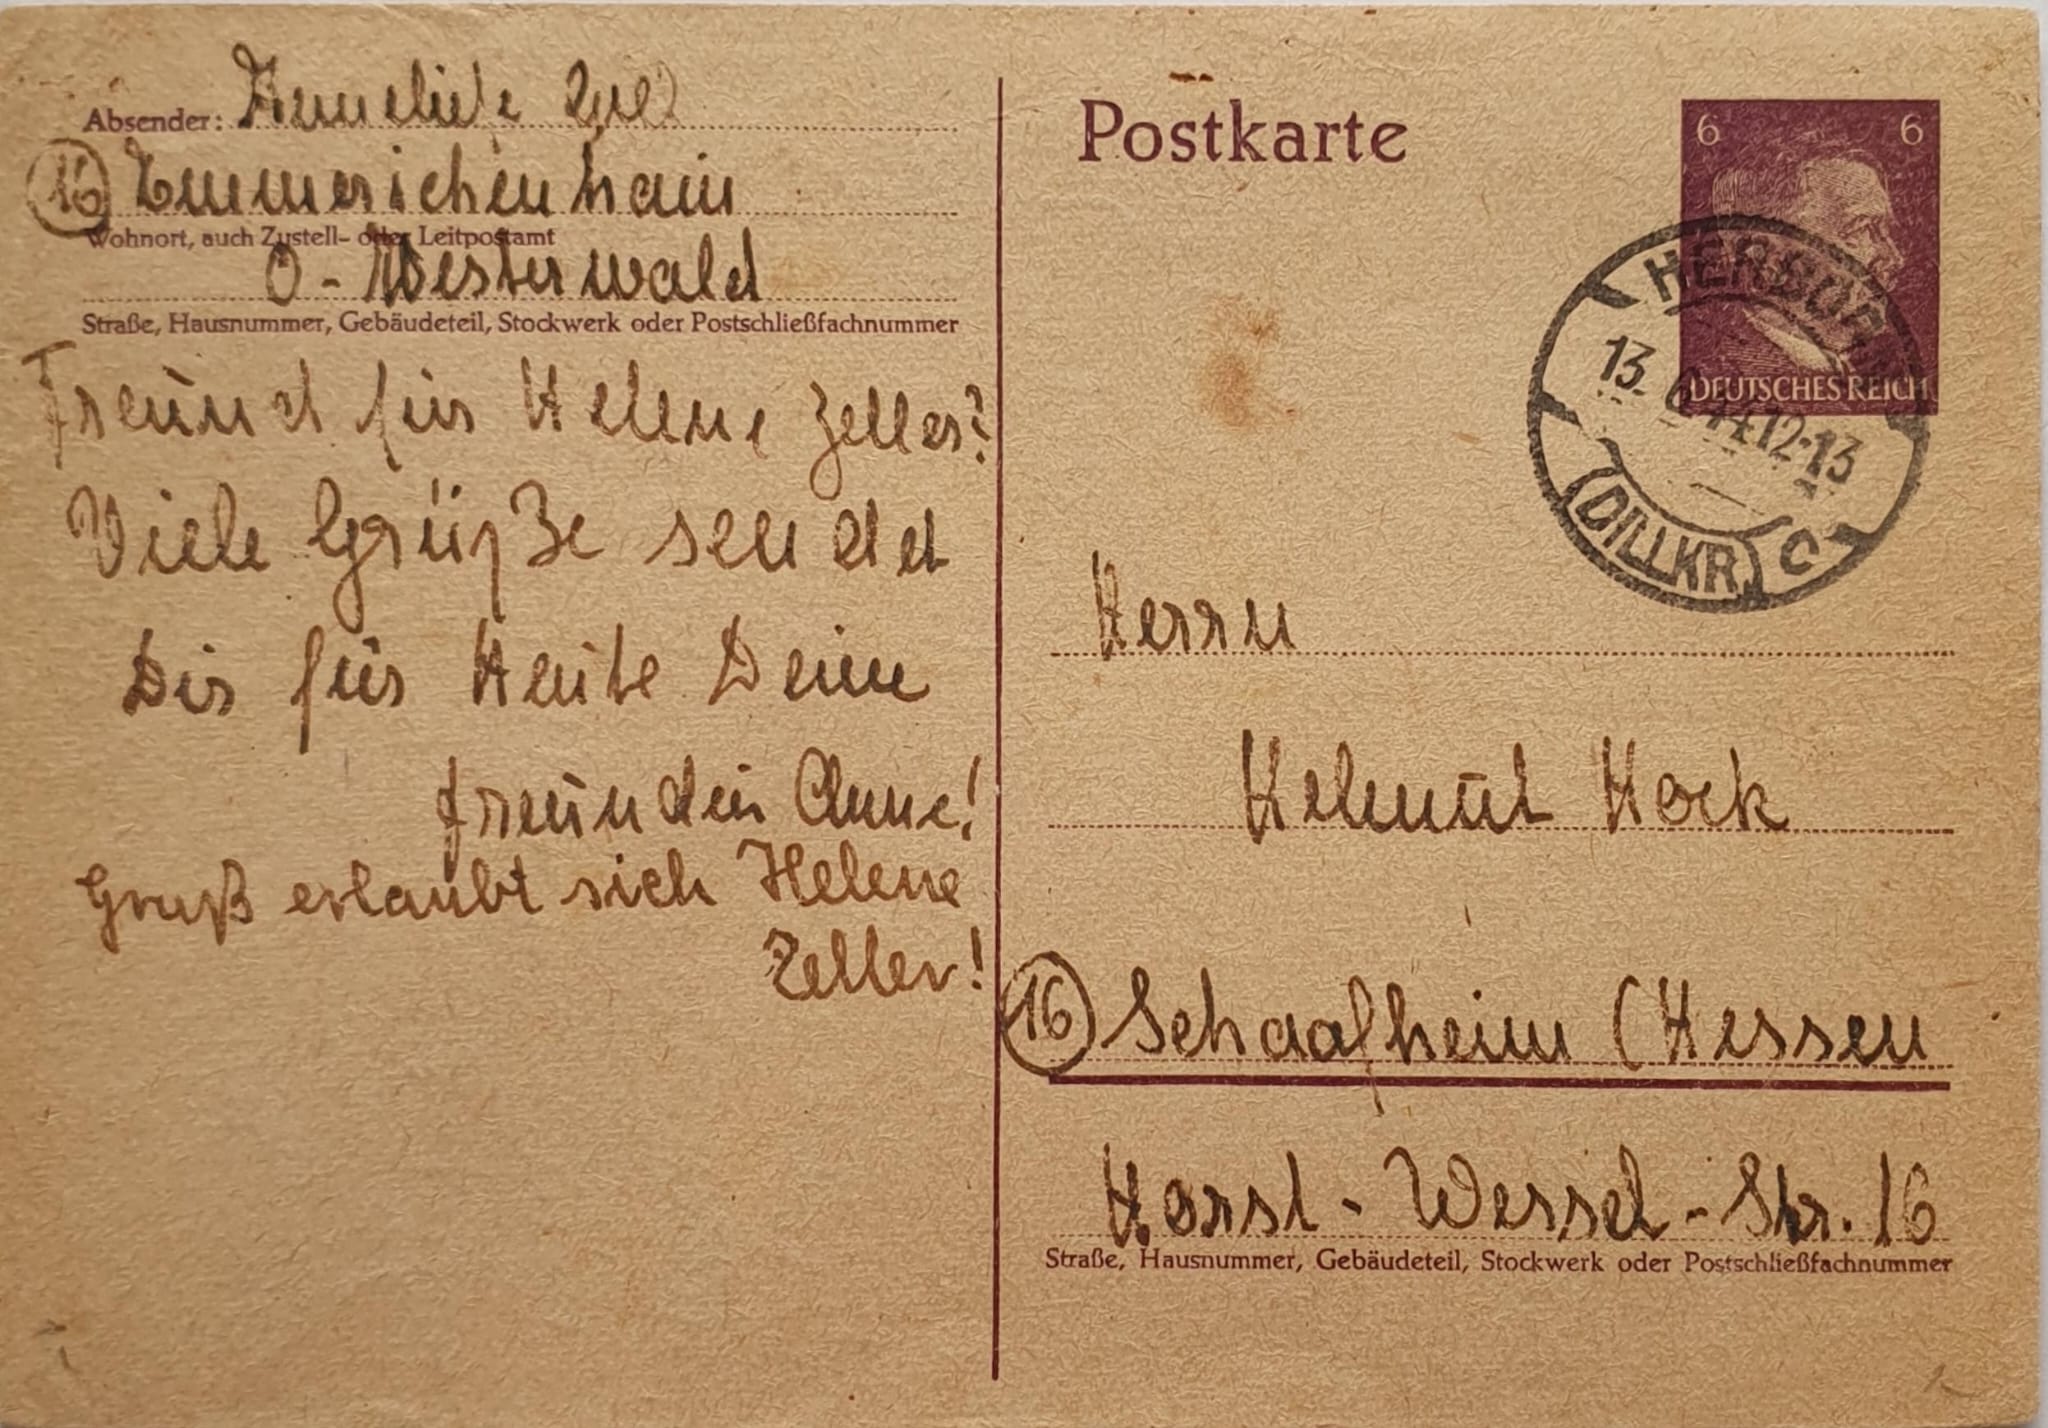 Absender: Anneliese
16 Emmerichenhain
Wohnort, auch Zustell- oder Leitpostamt
O-Westerwald
Straße, Hausnummer, Gebäudeteil, Stockwerk oder Postschließfachnummer
Freund für Helene Zeller?
Viele Grüße sendet
Dir für Heute Deine
Freundin Anne!
Gruß erlaubt sich Helene
Zeller!
Postkarte
6 6
DEUTSCHES REICH
HERBORN
13. 6.44.12-13
(DILLKR.) C
Herrn
Helmut Hock
16 Schaafheim (Hessen
Horst-Wessel-Str. 16
Straße, Hausnummer, Gebäudeteil, Stockwerk oder Postschließfachnummer